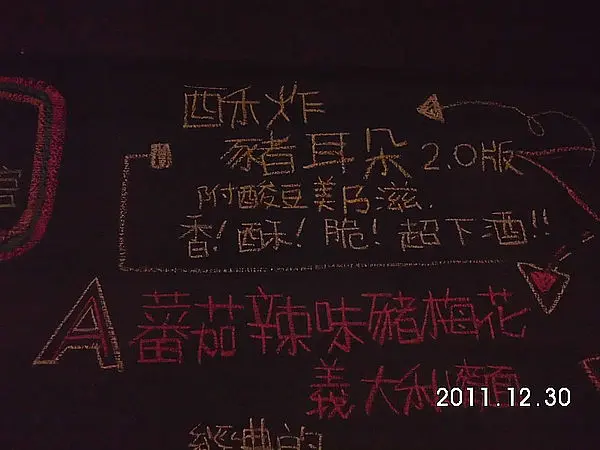 酥炸
豬耳朵 2.0版
附酸豆美乃滋.
香!酥!脆!超下酒!!
A 蕃茄辣味豬梅花
義大利麵
2011.12.30
經典的